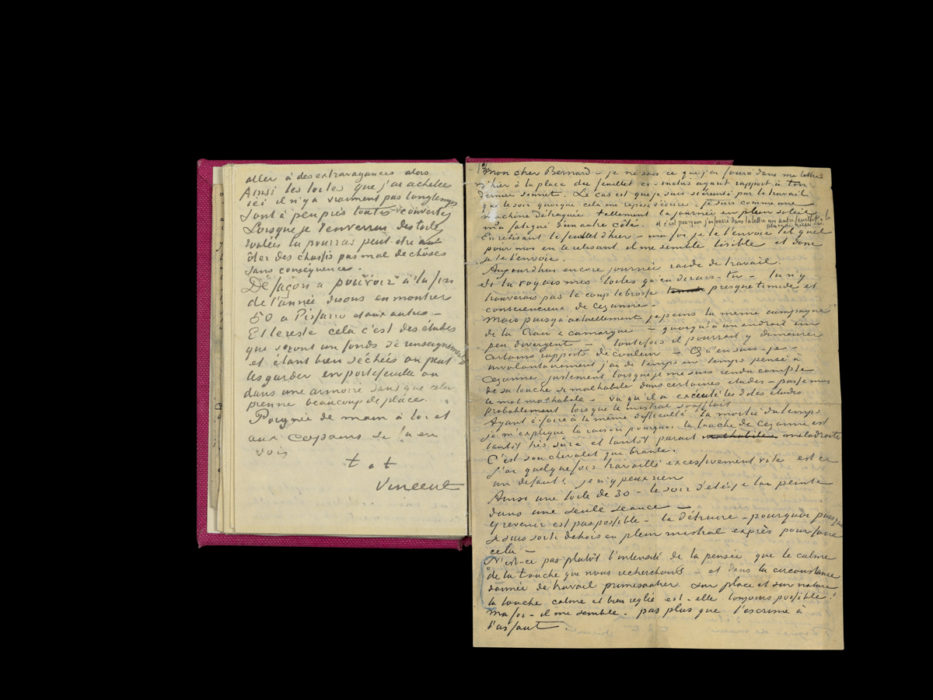 aller à des extravagances alors
Ainsi les toiles que j'ai achetées
ici il n'y a vraiment pas longtemps
sont à peu près toutes couvertes
Lorsque je t'enverrai des toiles
roulées tu pourras peut être
ôter des chassis pas mal de choses
sans consequence.
De façon à pouvoir à la fin
de l'année disons en montrer
50 à Pissarro et aux autres –
Et le reste cela c'est des études
que seront un fonds de renseignements
et étant bien séchées on peut
les garder en portefeuille ou
dans une armoire sans que cela
prenne beaucoup de place.
Poignée de main à toi et
aux copains
voir
t. à t.
Vincent
Mon cher Bernard – je ne sais ce que j'ai fourré dans ma lettre
d'hier à la place du feuillet ci-inclus ayant rapport à ton
dernier sonnet. Le cas est que je suis si éreinté par le travail
que le soir quoique cela me repose d'écrire je suis comme une
machine détraquée tellement la journée en plein soleil
m'a fatigué d'un autre côté. Et c'est pourquoi j'ai fourré dans la lettre un autre feuillet à la
place de celui-ci.
En relisant le feuillet d'hier – ma foi je te l'envoie tel quel
pour moi en le relisant il me semble lisible et donc
je te l'envoie.
Aujourd'hui encore journée raide de travail.
Si tu voyais mes toiles qu'en dirais-tu – tu n'y
trouverais pas le coup de brosse presque timide et
consciencieux de Cezanne.
Mais puisqu'actuellement je peins la même campagne
de la Crau & Camargue – quoiqu'à un endroit un
peu divergent – toutefois il pourrait y demeurer
certains rapports de couleur – Qu'en sais-je –
involontairement j'ai de temps en temps pensé à
Cezanne justement lorsque je me suis rendu compte
de sa touche si malhabile dans certaines études – passe moi
le mot malhabile – vu qu'il a executé les dites études
probablement lorsque le mistral soufflait
Ayant à faire à la même difficulté la moitié du temps
je m'explique la raison pourquoi la touche de Cezanne est
tantôt très sûre et tantôt parait maladroite
C'est son chevalet qui branle.
J'ai quelquefois travaillé excessivement vite est ce
un défaut je n'y peux rien
Ainsi une toile de 30 – le soir d'été je l'ai peinte
dans une seule seance –
y revenir est pas possible – la détruire – pourquoi puisque
je suis sorti dehors en plein mistral exprès pour faire
cela –
N'est-ce pas plutôt l'intensité de la pensée que le calme
de la touche que nous recherchons – et dans la circonstance
donnée de travail primesautier sur place et sur nature
la touche calme et bien réglée est-elle toujours possible?
Ma foi – il me semble – pas plus que l'escrime à
l'assaut.